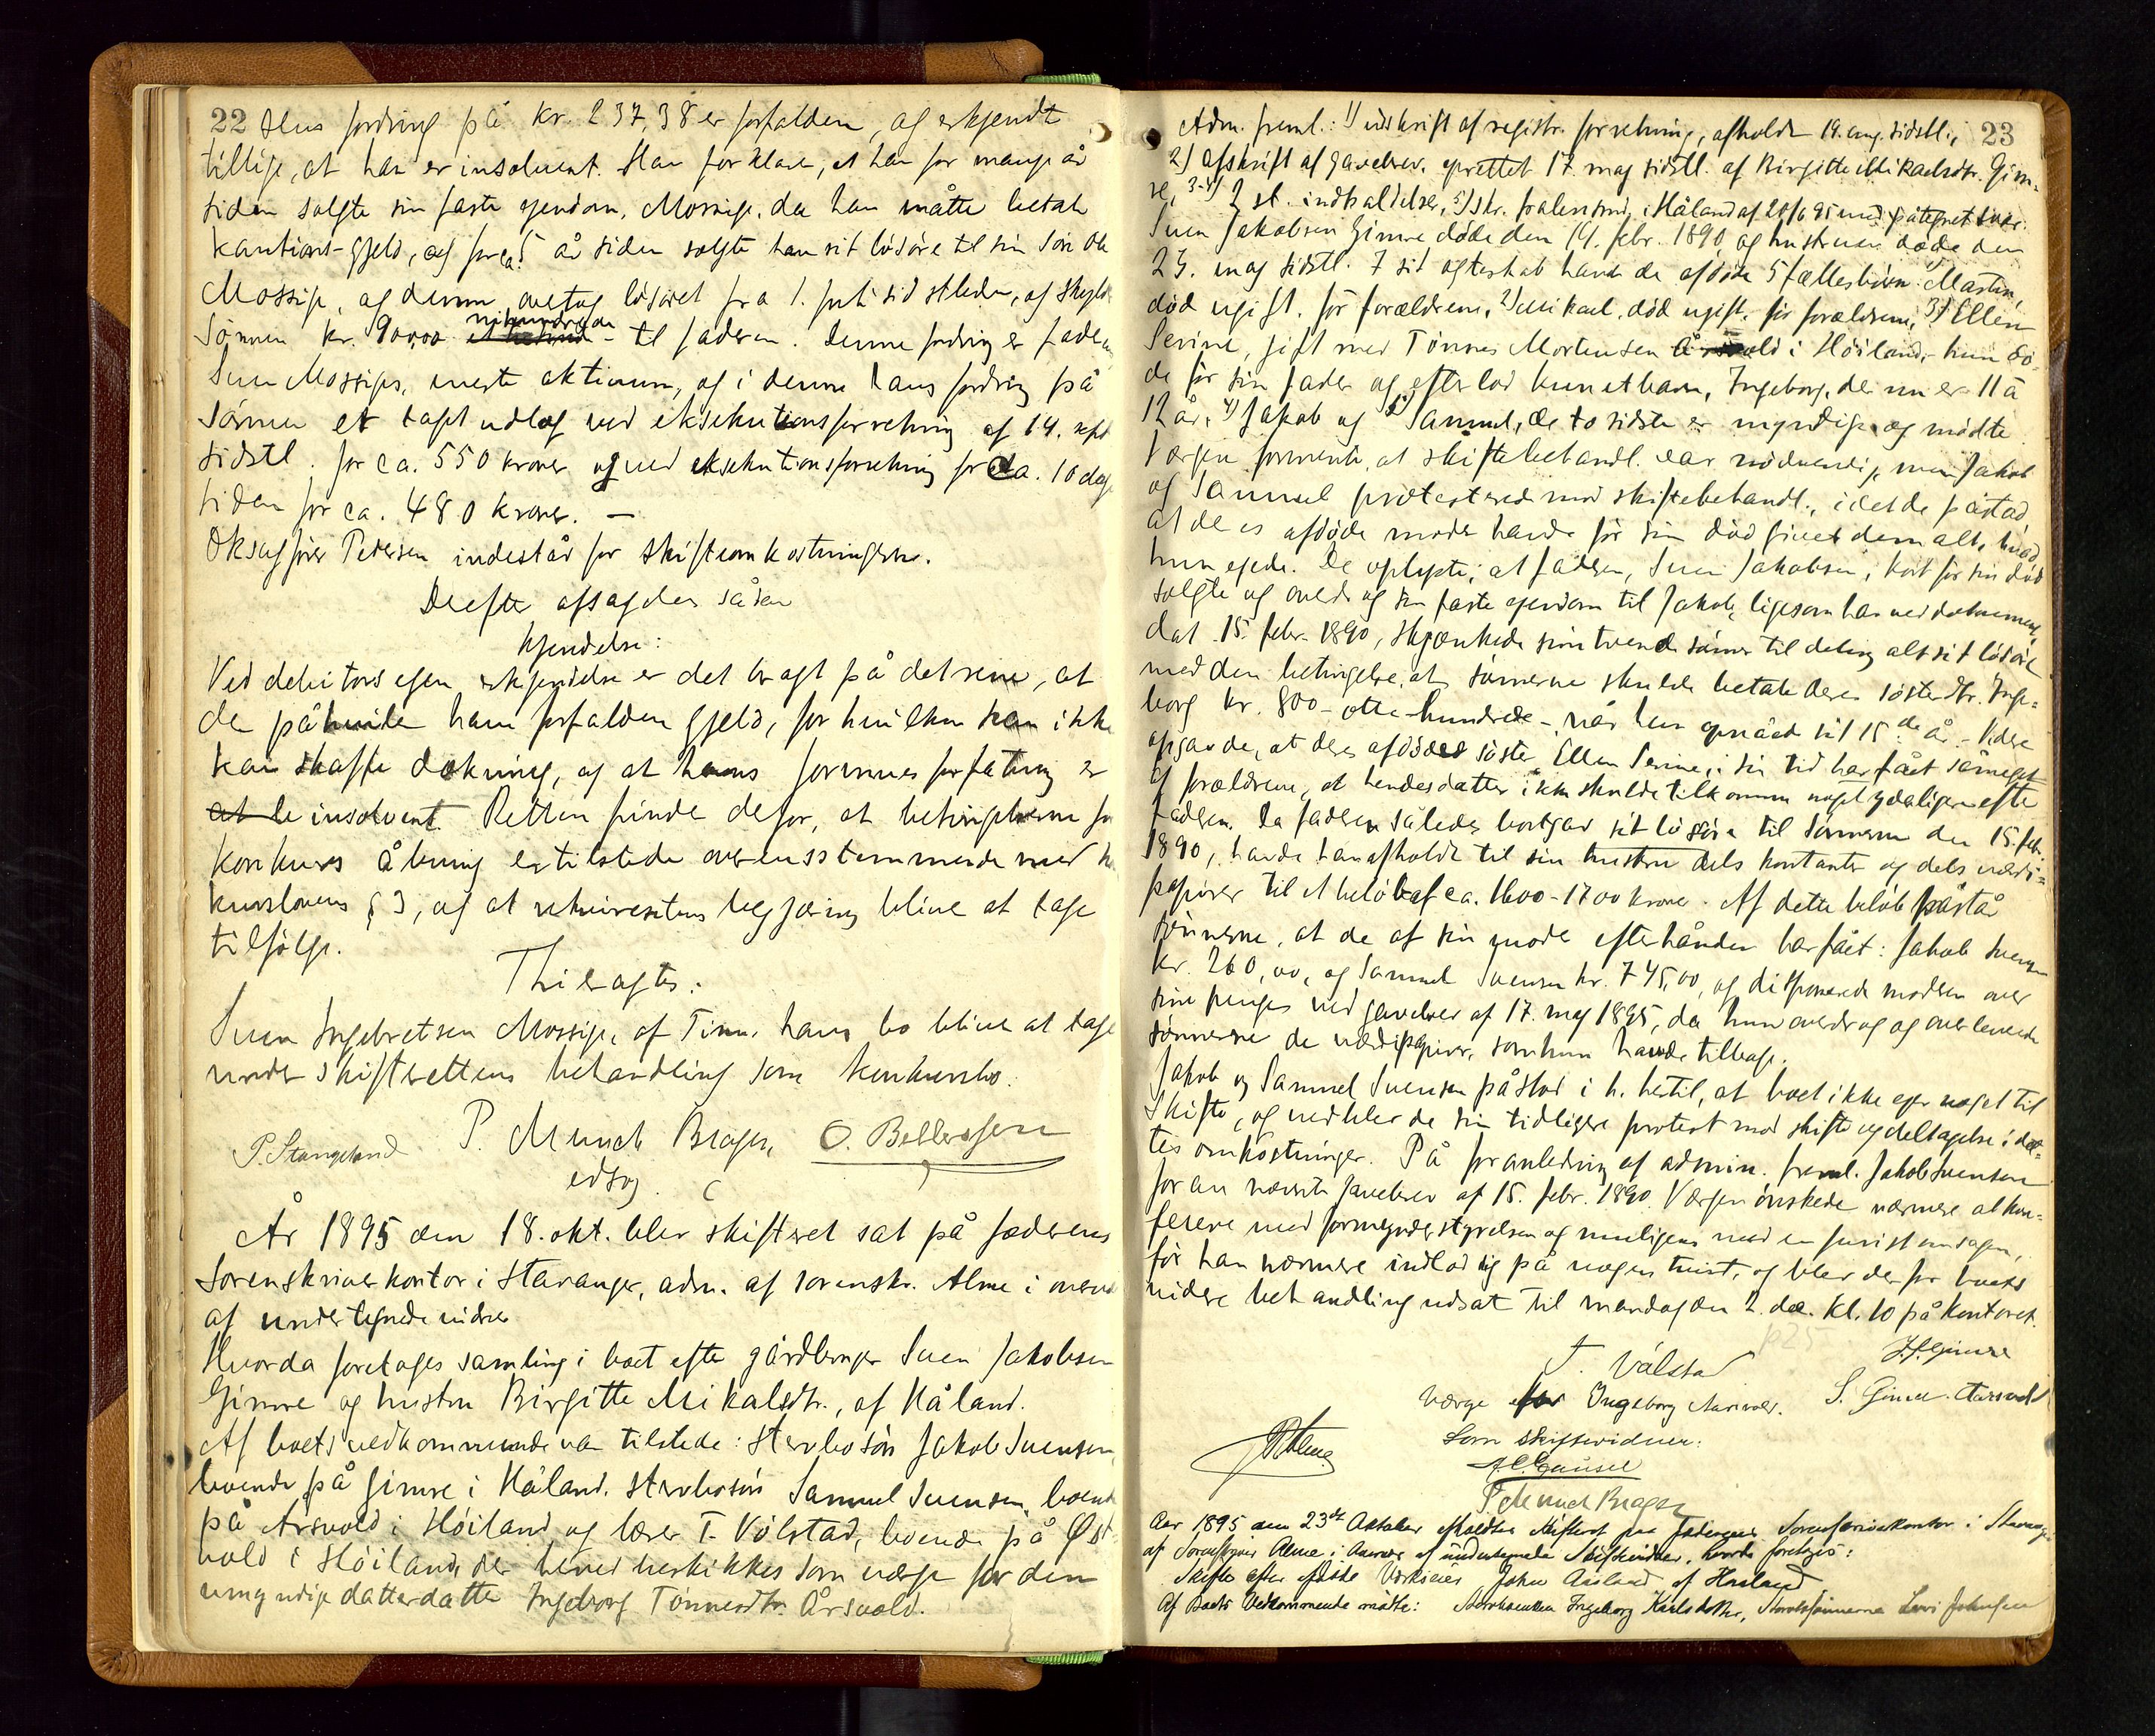 22 Hus fordring på kr. 237,38 er forfalden, og erkjendte
tillige, at han er insolvent. Han forklare, at han for mange år
siden solgte sin faste eiendom, Mossige, da han måtte betale
kautions-gjeld, og for ca. 5 år siden solgte han sit løsøre til sin søn Ole
Mossige, og denne overtog løsøret fra 1. juli sidstleden, og skylder
Sønnen kr. 900,00 nihundrede - til faderen. Denne fordring er faderen
Sven Mossiges, eneste aktivum, og i denne hans fordring på
sønnen er taget udlæg ved eksekutionsforretning af 14. sept
sidstl. for ca. 550 kroner og ved eksekutionsforretning for ca. 10 dage
siden for ca. 480 kroner. —
Oksagfører Petersen indestår for skifteomkostningerne.
Derefter afsagdes sådan
Kjendelse:
Ved debitors egen erkjendelse er det bragt på det rene, at
der påhviler ham forfalden gjeld, for hvilken han ikke
kan skaffe dækning, og at hans formuesforfatning er
at le insolvent. Retten finder derfor, at betingelserne for
konkurs åbning er tilstede overensstemmende med kon
kurslovens § 3, og at rekvirentens begjæring bliver at tage
tilfølge.
Thi eragtes:
Sven Ingebretsen Mossige, af Time, hans bo bliver at tage
under skifterettens behandling som konkursbo.
P. Stangeland P. Munch Brager, O. Bellesen
edsv.
År 1895 den 18. okt. blev skifteret sat på Jæderens
Sorenskriverkontor i Stavanger, adm. af sorenskr. Alme i overvær
af undertegnede vidner
Hvorda foretoges samling i boet efter gårdbruger Sven Jakobsen
Gimre og hustru Birgitte Mikalsdtr., af Håland.
Af boets vedkommende var tilstede: Stervbosøn Jakob Svensen,
boende på Gimre i Håland, stervbosøn Samuel Svensen, boende
på Arsvold i Høiland og lærer T. Vølstad, boende på Øst
vold i Høiland, der herved beskikkes som værge for den
umyndige datterdatter Ingeborg Tønnesdtr. Årsvold.
Adm. freml.: 1) udskrift af registr. forretning, afholdt 19. aug. sidstl., 23
2) afskrift af gavebrev. oprettet 17 maj sidstl. af Birgitte Mikaelsdtr. Gim-
re, 3-4) 2 st. indkaldelser, 5) skr. fra lensmd. i Håland af 28/6 95 med påtegnet svar.
Sven Jakobsen Gimre døde den 14. febr. 1890 og hustruen døde den
23. maj sidstl. I sit ægteskab havde de afdøde 5 fællesbørn: 1) Martin,
død ugift. før forældrene, 2) Mikael, død ugift. før forældrene, 3) Ellen
Serine, gift med Tønnes Mortensen Årsvold i Høiland, hun dø-
de før sin fader og efterlod kun et barn, Ingeborg, der nu er 11 à
12 år, 4) Jakob og 5) Samuel, de to sidste er myndige og mødte
Værgen formente, at skiftebehandl. var nødvendig, men Jakob
og Samuel protesterede mod skiftebehandl., idet de påstod,
at deres afdøde moder havde før sin død givet dem alt, hvad
hun eiede. De oplyste, at faderen, Sven Jakobsen, kort før sin død
solgte og overdrog sin faste eiendom til Jakob, ligesom han ved dokument,
dat. 15. febr. 1890, skjænkede sine tvende sønner til deling alt sit løsøre
med den betingelse, at sønnerne skulde betale deres søsterdtr. Inge-
borg kr. 800 - otte hundrede -, når hun opnåede sit 15de år. - Videre
opgav de, at deres afdøde søster Ellen Serine, i sin tid har fået så meget
af forældrene, at hendes datter ikke skulde tilkomme noget yderligere efter
faderen. Da faderen således bortgav sit løsøre til sønnerne den 15. feb.
1890, havde han afholdt til sin hustru dels kontanter og dels værdi-
papirer til et beløb af ca. 1600-1700 kroner. Af dette beløb påstår
sønnerne, at de af sin moder efterhånden har fået: Jakob Svensen
kr. 260,00, og Samuel Svensen kr. 745,00, og disponerede moderen over
sine penger ved gavebrev af 17. maj 1895, da hun overdrog og overleverede
sønnerne de værdipapirer, som hun havde tilbage.
Jakob og Samuel Svensen påstod i h. hertil, at boet ikke eier noget til
Skifte, og vedblev de sin tidligere protest mod skifte og deltagelse i det-
tes omkostninger. På foranledning af admin. freml. Jakob Svensen
foran nævnte gavebrev af 15. febr. 1890. Værgen ønskede nærmere at kon-
ferere med formynderstyrelsen og muligens med en jurist om sagen,
før han nærmere indlod sig på nogen tvist, og blev derfor boets
videre behandling udsat til mandag den 2. dec. kl. 10 på kontoret.
p25
T. Vålstad J. S. Gimre
værge for Ingeborg Aarsvol. S. Gimre. Aarsvold
Som skiftevidner:
P. Alme
P. Munch Brager
Aar 1895 den 23de Oktober afholdtes Skifteret paa Jæderens Sorenskriverkontor i Stavanger
af Sorenskriver Alme, i Overvær af undertegnede Skiftevidner, hvorda foretoges:
Skifte efter afdøde John Aasland af Haaland
Af Boets Vedkommende mødte: Stervboenken Ingeborg Karlsdatter, Stervbosønnerne Lars Johnsen